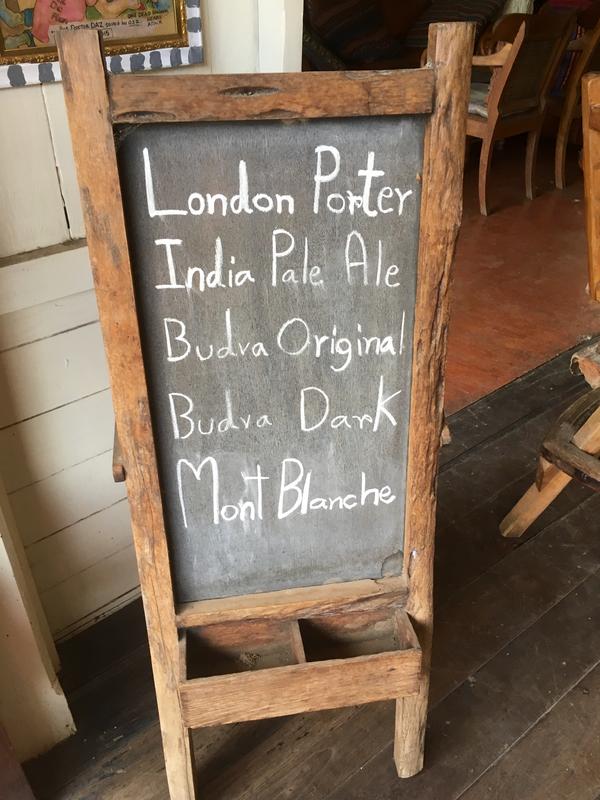 London Porter
India Pale Ale
Budva Original
Budva Dark
Mont Blanche